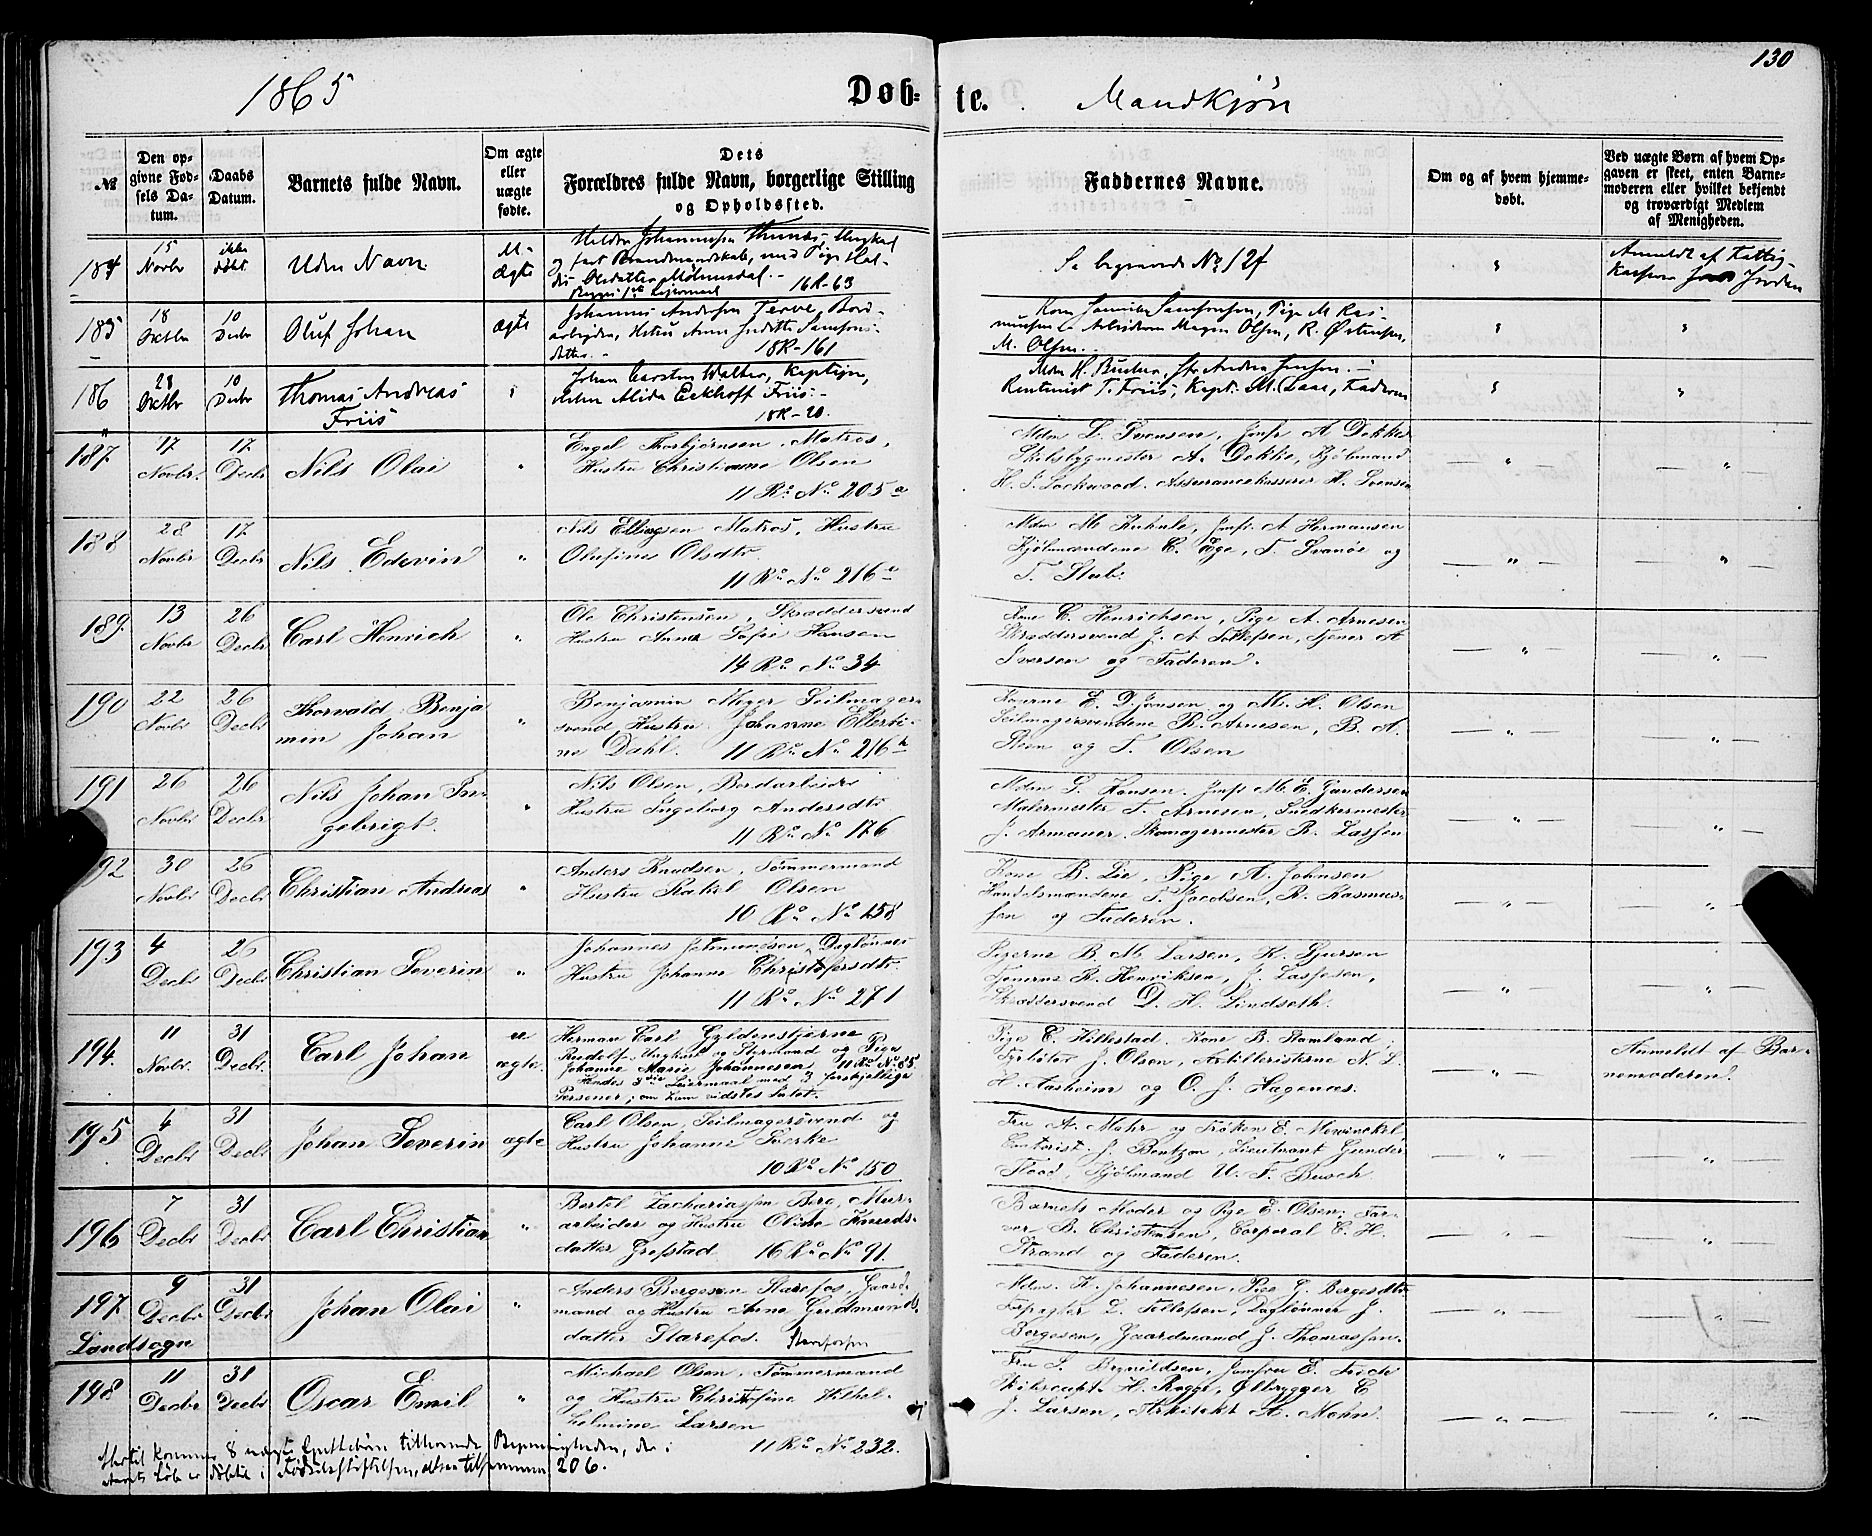 130
1865
Døb-
te.
Mandkjøn
№
Den op-
givne Fød-
sels Da-
tum.
Daabs
Datum.
Barnets fulde Navn.
Om ægte
eller
uægte
fødte.
Dets
Forældres fulde Navn, borgerlige Stilling
og Opholdssted.
Faddernes Navne.
Om og af hvem hjemme-
døbt.
Ved uægte Børn af hvem Op-
gaven er skeet, enten Barne-
moderen eller hvilket bekjendt
og troværdigt Medlem
af Menigheden.
184
15
Novbr
ikke
døbt
Uden Navn
U-
ægte
16R-63
Se begravede No 124
Anmeldt af Fattig-
185
18
Oktbr
10
Decbr
Oluf Johan
ægte
Johannes Andersen Terve, Bord-
arbeider, Hustru Anne Samsons-
datter.
18R-161
Kone Samsonsen, Pige M Ras-
mussen, Arbeiderne Magnus Olsen, R. Østensen,
M. Olsen.
186
28
Oktbr
10
Decbr
Thomas Andreas
Friis
Johan Carsten Walter, Kaptejn,
Alida Eckhoff Friis.
18R-20.
Rentenist T. Friis, Kapt. M. Claae, Faderen
187
17
Novbr.
17
Decbr
Nils Olai
"
Engel Thorbjørnsen, Matros,
Hustru Christianne Olsen
11 Ro No 205 a
Mdm L. Svensen, Jmfr A Dekke
Skibsbygmester A. Dekke, Kjøbmand
H. J. Lockwood, Assurancekasserer H. Svensen
188
28
Novbr
17
Decbr
Nils Edevin
"
Nils Ellingsen Matros, Hustru
Olufine Olsdtr
11 Ro No 216 a
Mdm M Kuhnle, Jmfr A Hermansen
Kjøbmændene C. Ege, T. Svanøe og
T. Stub.
189.
13
Novbr
26
Decbr
Carl Henrich
"
Ole Christensen, Skræddersvend
Hustru Anna Sofie Hansen
14 Ro No 34
Kone C. Henrichsen, Pige A. Arnesen
Skræddersvend J. A Tollefsen, Tjener A
Iversen og Faderen.
190
22
Novbr
26
Decbr
Thorvald Benja
min Johan
"
Benjamin Meyer Seilmager-
svend Hustru Johanne Ellerti-
ne Dahl. 11 Ro No 216 b
Konerne E. Djønsen og M. H. Olsen
Seilmagersvendene B. Arnesen, B. A.
Steen og T. Olsen
191
26
Novbr
26
Decbr
Nils Johan In-
gebrigt.
"
Nils Olsen, Bordarbeider
Hustru Ingeborg Andersdtr
11 Ro No 176
Mdm S. Hansen, Jmfr M. E. Gundersen
Malermester T. Arnesen, Snedkermester
J. Armauer, Skomagermester R. Lassen
92
30
Novbr
26
Decbr
Christian Andreas
"
Anders Knudsen, Tømmermand
Hustru Rakel Olsen
10 Ro No 158
Kone B. Lie, Pige A. Johnsen
Handelsmændene T. Jacobsen, R. Rasmus-
sen og Faderen.
193
4
Decbr
26
Decbr
Christian Severin
"
Johannes Jetmundsen, Dagløner
Hustru Johanne Christofersdtr.
11 Ro No 271
Pigerne B. M Larsen, K. Sjursen
Tjenerne R. Henriksen, J. Lassesen,
Skræddersvend D. H. Lindseth.
194
11
Novbr.
31
Decbr.
Carl Johan
u
ægte.
Herman Carl Gyldenstjerne
Rudolf, Ungkarl og Styrmand og Pige
Johanne Marie Johannesen 11 Ro No 85
Hendes 3die Leiermaal med 3 forskjellige
Personer, om ham vidstes Intet.
Pige E. Hillestad, Kone B. Hamland,
J. Olsen, Artilleristerne N. L.
H. Aasheim og O. J. Hagenæs.
Anmeldt af Bar-
nemoderen.
195
4
Decbr
31
Decbr
Johan Severin
ægte
Carl Olsen, Seilmagersvend og
Hustru Johanne Sverke
10 Ro No 150
Fru A. Mohr og Frøken E. Mowinckel,
Contorist J. Bentzon, Lieutnant Gunder
Flood, Kjøbmand U. F. Busch
196
7
Decbr
31
Decbr
Carl Christian
"
Bertel Zachariassen Berg, Mur-
arbeider og Hustru Oline Knuds-
datter Grefstad 16 Ro No 91.
Barnets Moder og Pige E. Olsen, Far-
ver B. Christensen, Corporal C. H.
Strand og Faderen.
197
Landsogn
9
Decbr
31
Decbr
Johan Olai
"
Anders Bergesen Starefos, Gaard-
mand og Hustru Anne Gudmunds-
datter Starefos.
Mdm. K. Johannesen, Pige G. Bergesdtr
Forpagter L. Tollefsen, Dagløner J.
Bergesen, Gaardmand J. Thomassen.
198
11
Decbr
31
Decbr
Oscar Emil
"
Michael Olsen, Tømmermand
og Hustru Christofine Wilhel-
helmine Larsen
11 Ro No 232.
Fru S. Brynildsen, Jomfru E. Friele
Skibscapt. H. Rogge, Ølbrygger C
J. Larsen, Arkitekt A. Mohn.
Hertil kommer 8 uægte tilhørende Menigheden, der i
Aarets Løb er døbte i Fødselsstiftelsen, altsaa tilsammen 206.